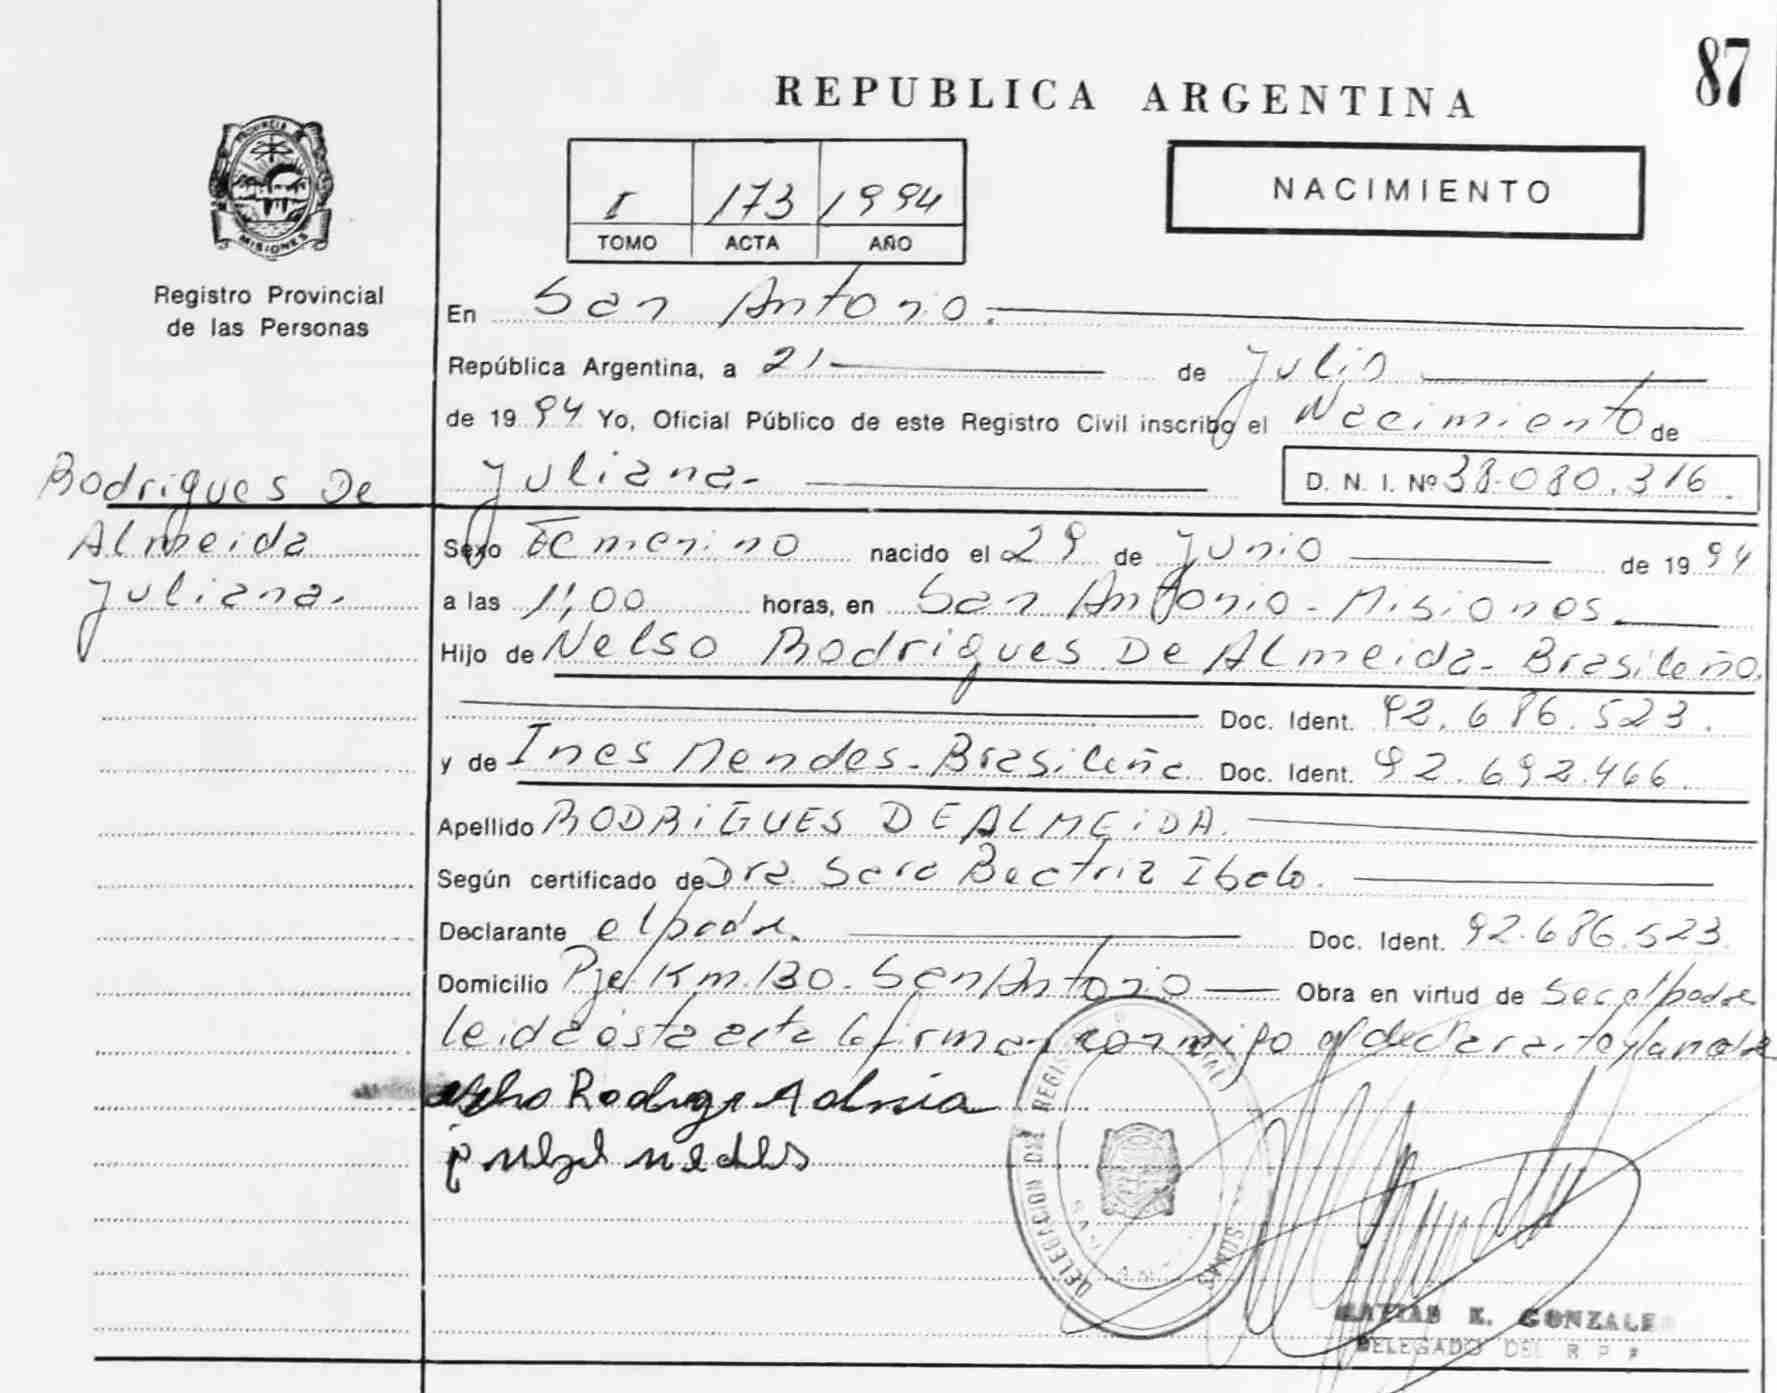 87
REPUBLICA ARGENTINA
PROVINCIA DE
MISIONES
Registro Provincial
de las Personas
I 173 1994
TOMO ACTA AÑO
NACIMIENTO
En San Antonio.
República Argentina, a 21 de Julio
de 1994 Yo, Oficial Público de este Registro Civil inscribo el Nacimiento de
Juliana. D. N. I. Nº 38.080.316.
Rodrigues De
Almeida
Juliana.
Sexo Femenino nacido el 29 de Junio de 1994
a las 11,00 horas, en San Antonio - Misiones.
Hijo de Nelso Rodrigues De Almeida - Brasileño.
Doc. Ident. 92.686.523.
y de Ines Mendes - Brasileña Doc. Ident. 92.692.466.
Apellido RODRIGUES DE ALMEIDA.
Según certificado de Dra. Sara Beatriz Ibalo.
Declarante el padre. Doc. Ident. 92.686.523.
Domicilio Pje. Km. 130. San Antonio Obra en virtud de Ser el padre
leida esta acta la firman conmigo el declarante y la madre
DELEGACION DEL REGISTRO
MATIAS E. GONZALEZ
DELEGADO DEL R P P